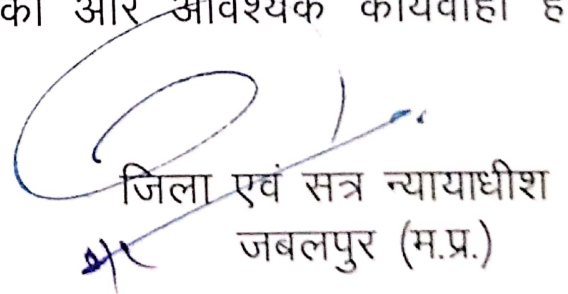 की ओर आवश्यक कार्यवाही ह
जिला एवं सत्र न्यायाधीश
जबलपुर (म.प्र.)